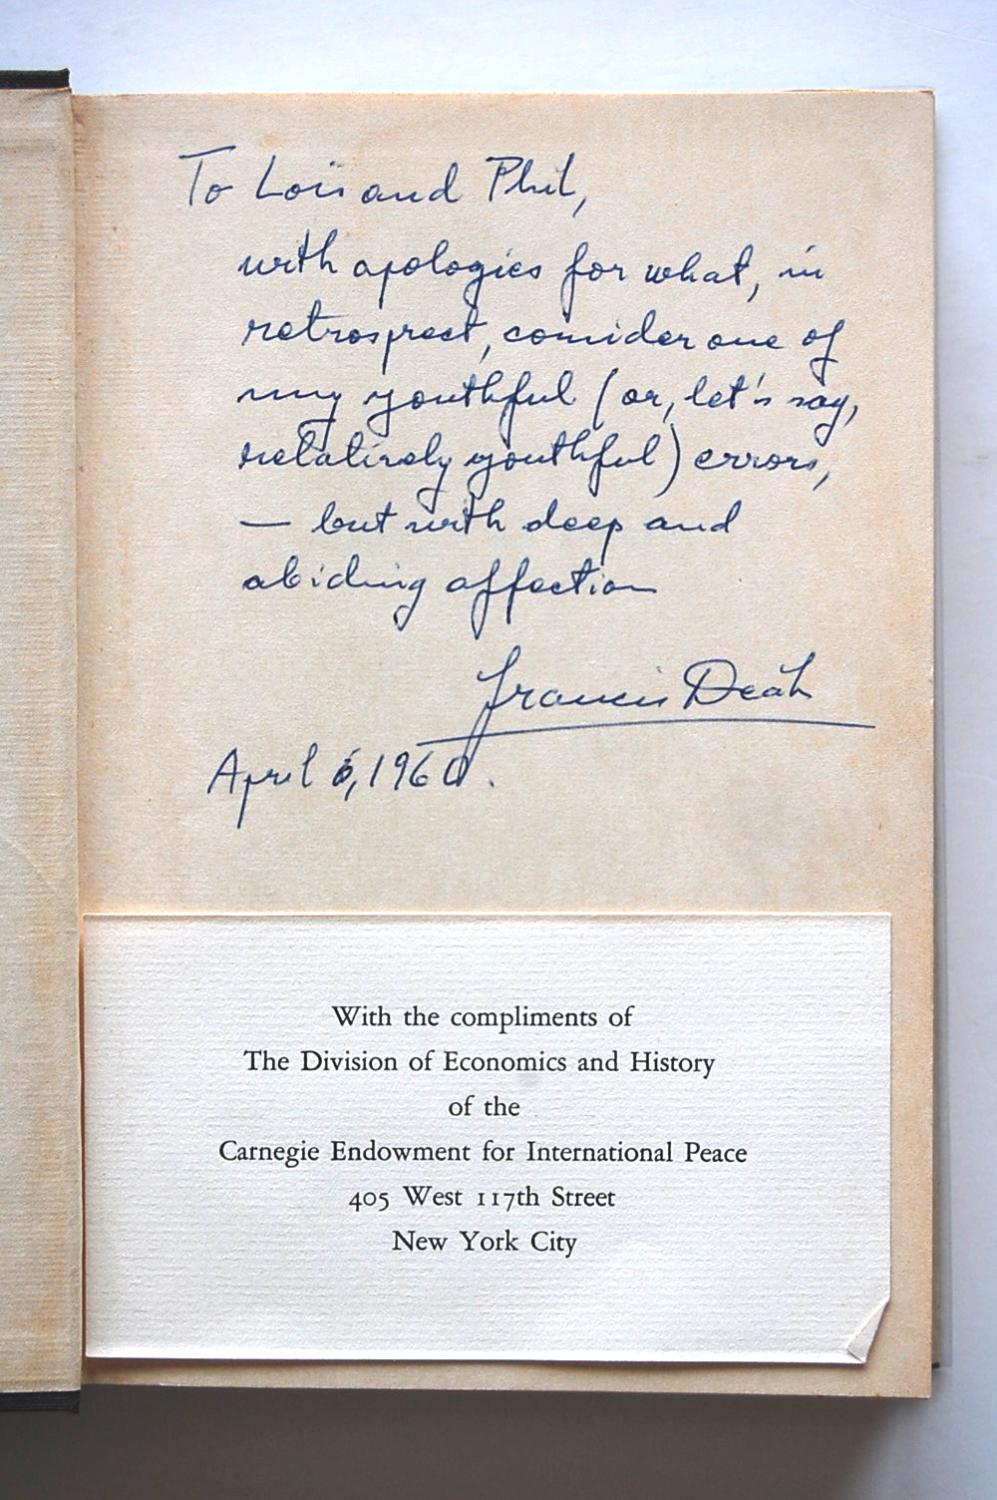 To Lois and Phil,
with apologies for what, in
retrospect, consider one of
my youthful (or, let's say,
relatively youthful) errors,
— but with deep and
abiding affection
Francis Deák
April 6, 1960.
With the compliments of
The Division of Economics and History
of the
Carnegie Endowment for International Peace
405 West 117th Street
New York City